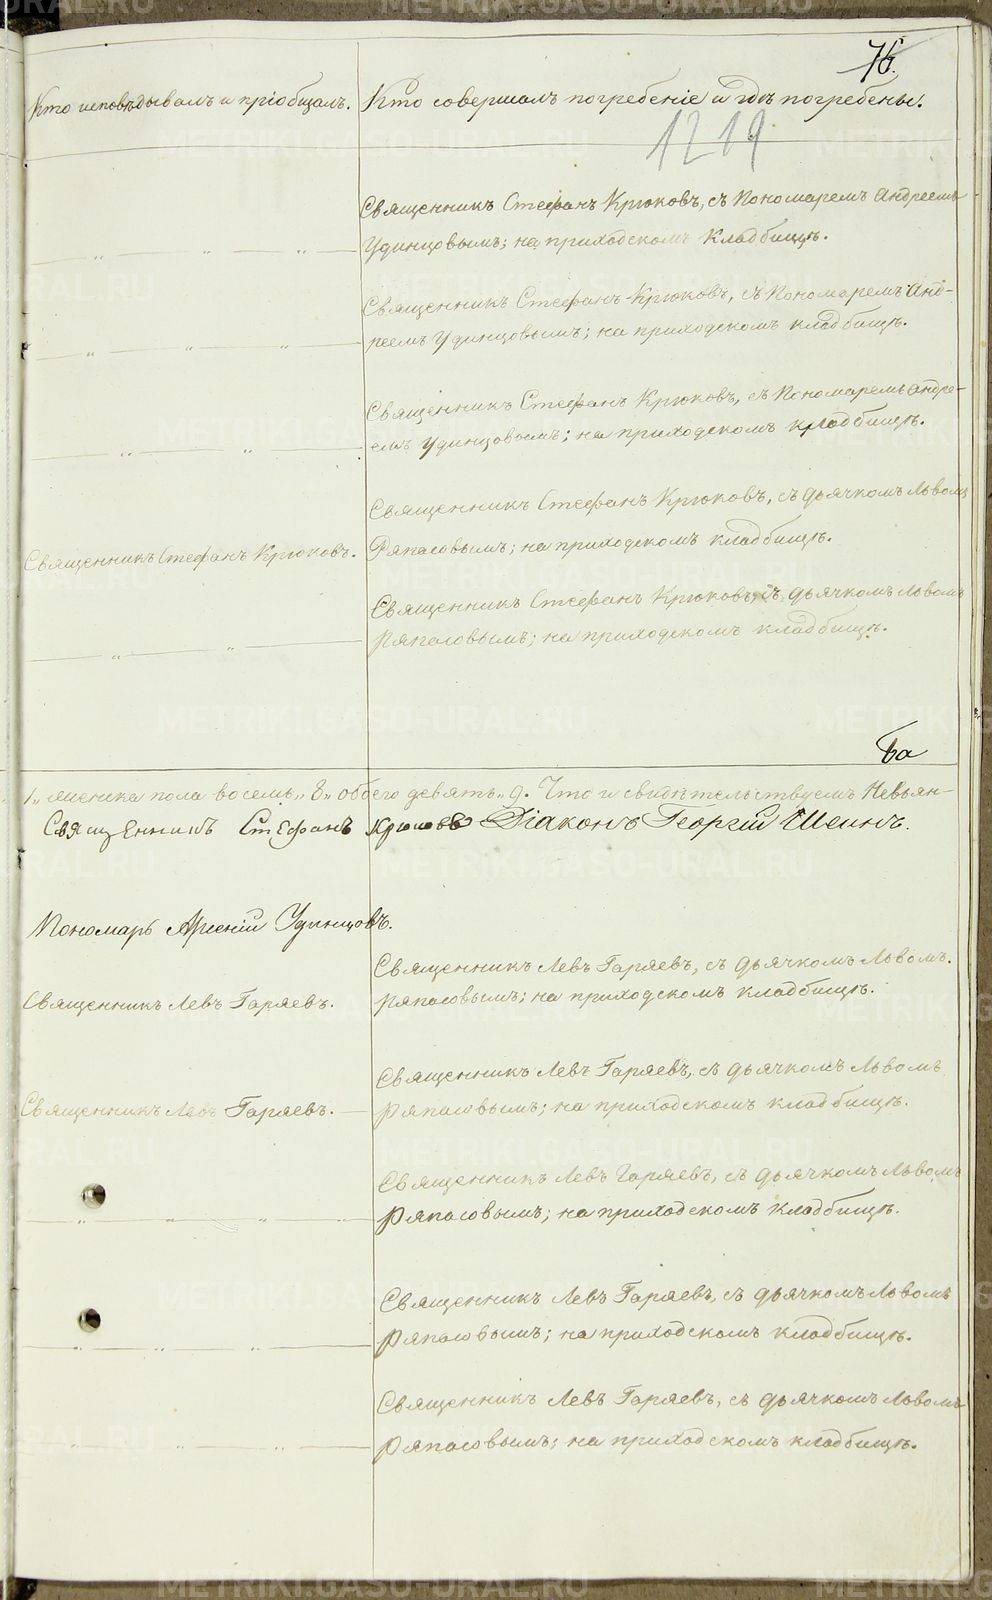 76.
Кто исповѣдывалъ и пріобщалъ.
Кто совершалъ погребеніе и гдѣ погребены.
1219
Священникъ Стефанъ Крюковъ, съ Пономаремъ Андреемъ
Удинцовымъ; на приходскомъ кладбищѣ.
Священникъ Стефанъ Крюковъ, съ Пономаремъ Анд-
реемъ Удинцовымъ; на приходскомъ кладбищѣ.
Священникъ Стефанъ Крюковъ, съ Пономаремъ Андре-
емъ Удинцовымъ; на приходскомъ кладбищѣ.
Священникъ Стефанъ Крюковъ, съ дьячкомъ Львомъ
Священникъ Стефанъ Крюковъ.
Ряпасовымъ; на приходскомъ кладбищѣ.
Священникъ Стефанъ Крюковъ, съ дьячкомъ Львомъ
Ряпасовымъ; на приходскомъ кладбищѣ.
1„ женска пола восемь„ 8„ обоего девять„ 9. Что и свидѣтельствуемъ Невьян-
Священникъ Стефанъ Крюковъ Діаконъ Георгій Шеинъ.
Пономарь Удинцовъ.
Священникъ Левъ Гаряевъ, съ дьячкомъ Львомъ
Священникъ Левъ Гаряевъ.
Ряпасовымъ; на приходскомъ кладбищѣ.
Священникъ Левъ Гаряевъ, съ дьячкомъ Львомъ
Священникъ Левъ Гаряевъ.
Ряпасовымъ; на приходскомъ кладбищѣ.
Священникъ Левъ Гаряевъ, съ дьячкомъ Львомъ
Ряпасовымъ; на приходскомъ кладбищѣ.
Священникъ Левъ Гаряевъ, съ дьячкомъ Львомъ
Ряпасовымъ; на приходскомъ кладбищѣ.
Священникъ Левъ Гаряевъ, съ дьячкомъ Львомъ
Ряпасовымъ; на приходскомъ кладбищѣ.
METRIKI.GASO-URAL.RU